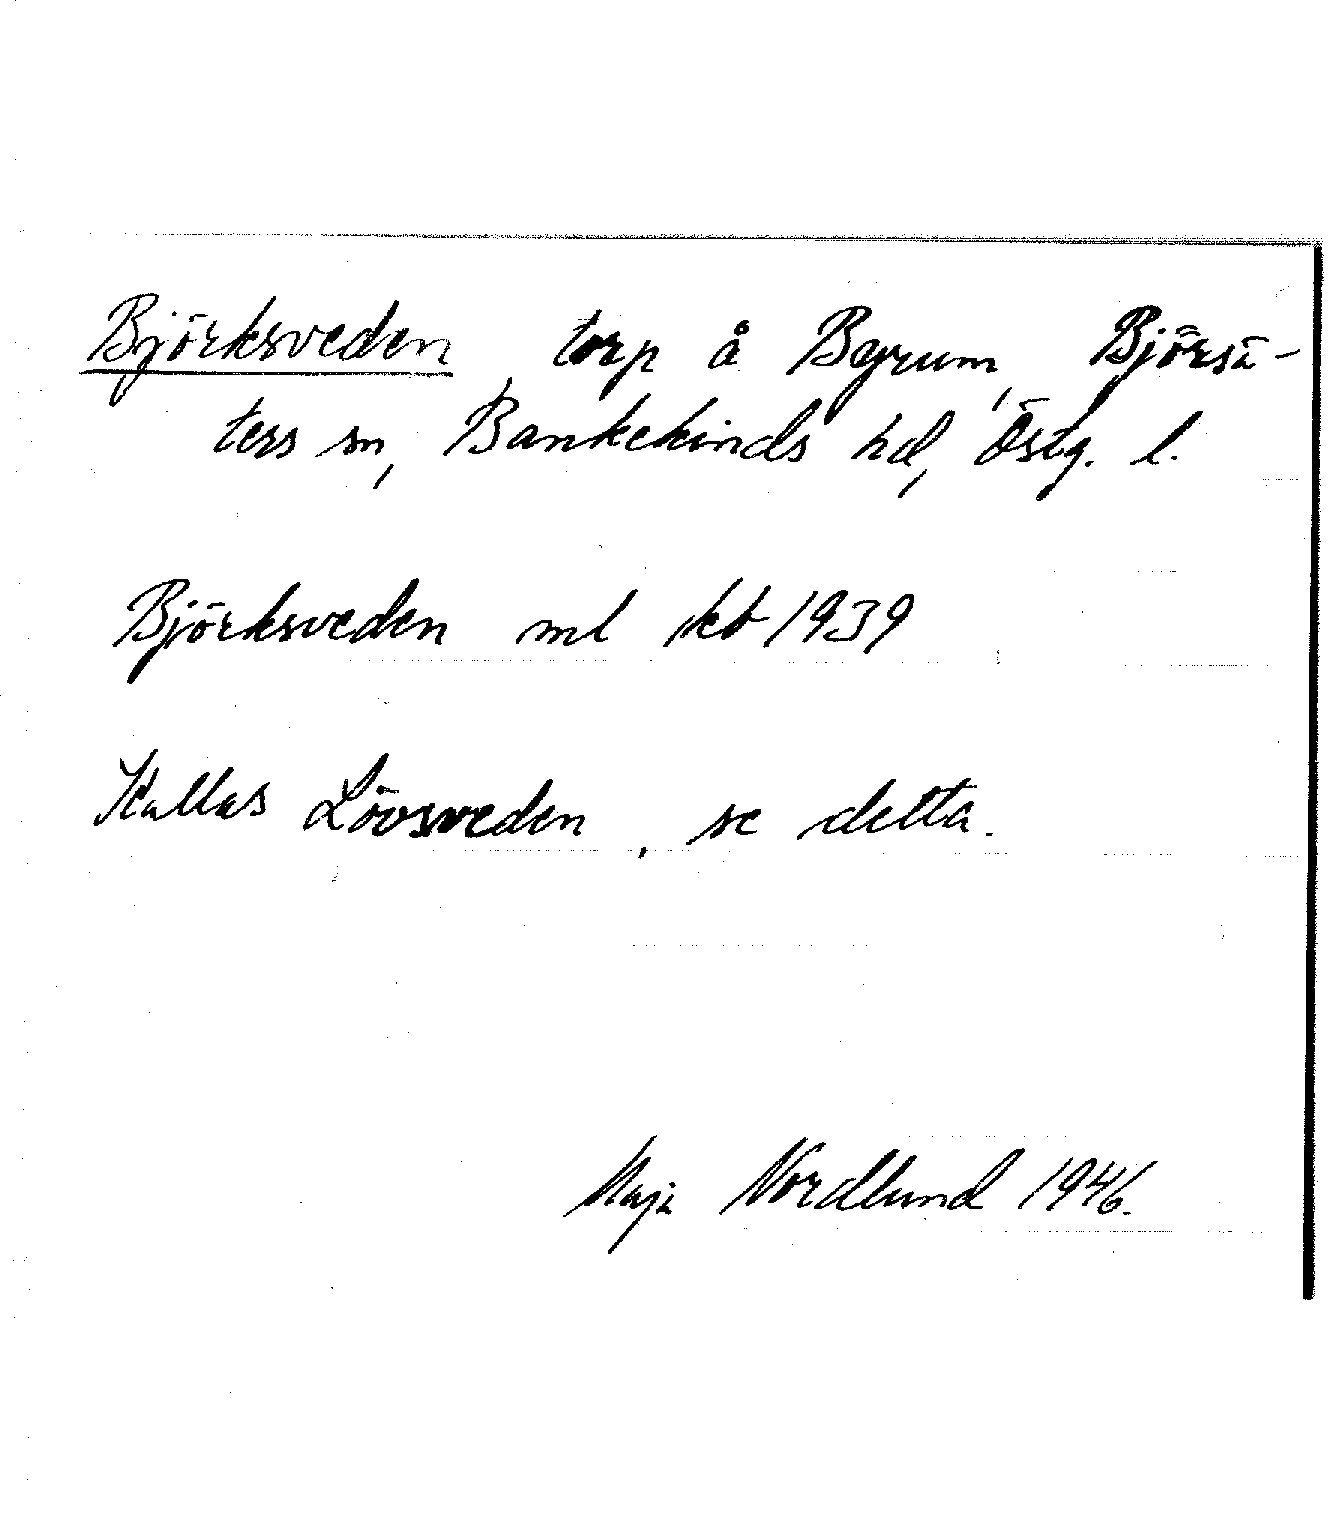 Björksveden, torp å Byrum, Björsä-
ters sn, Bankekinds hd, Östg. l.
Björksveden ml kb 1939
Kallas Lövsveden, se detta.
Maja Nordlund 1946.